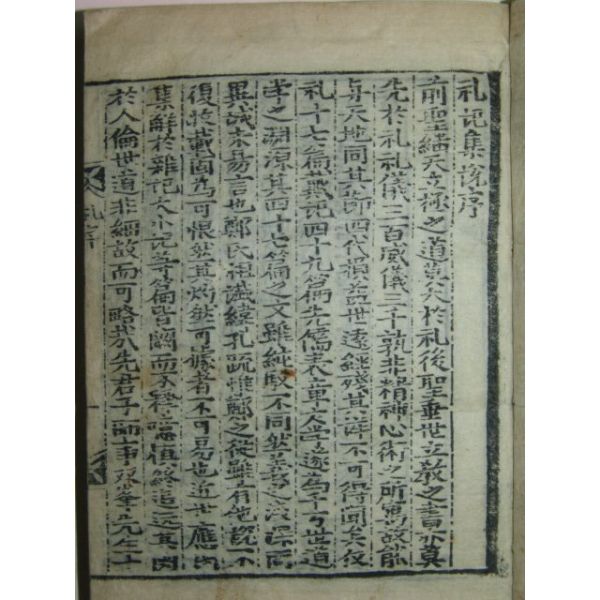 礼記集說序
前聖繼天立極之道莫大於礼後聖垂世立教之書亦莫
先於礼礼儀三百威儀三千孰非精神心術之所寓故能
与天地同其節四代損益世遠經残其详不可得聞矣仪
礼十七篇戴記四十九篇先儒表章大学遂為千万世道
学之淵源其四十七篇之文雖純駁不同然義之浅深同
異誠未易言也鄭氏祖讖緯孔疏惟鄭之從雖有他說不
復收載固為可恨然其灼然可據者不可易也近世應氏
集解於雜記大小記等篇皆闕而不釋噫慎終追遠其関
於人倫世道非細故而可略哉先君子師事双峯先生十
礼序